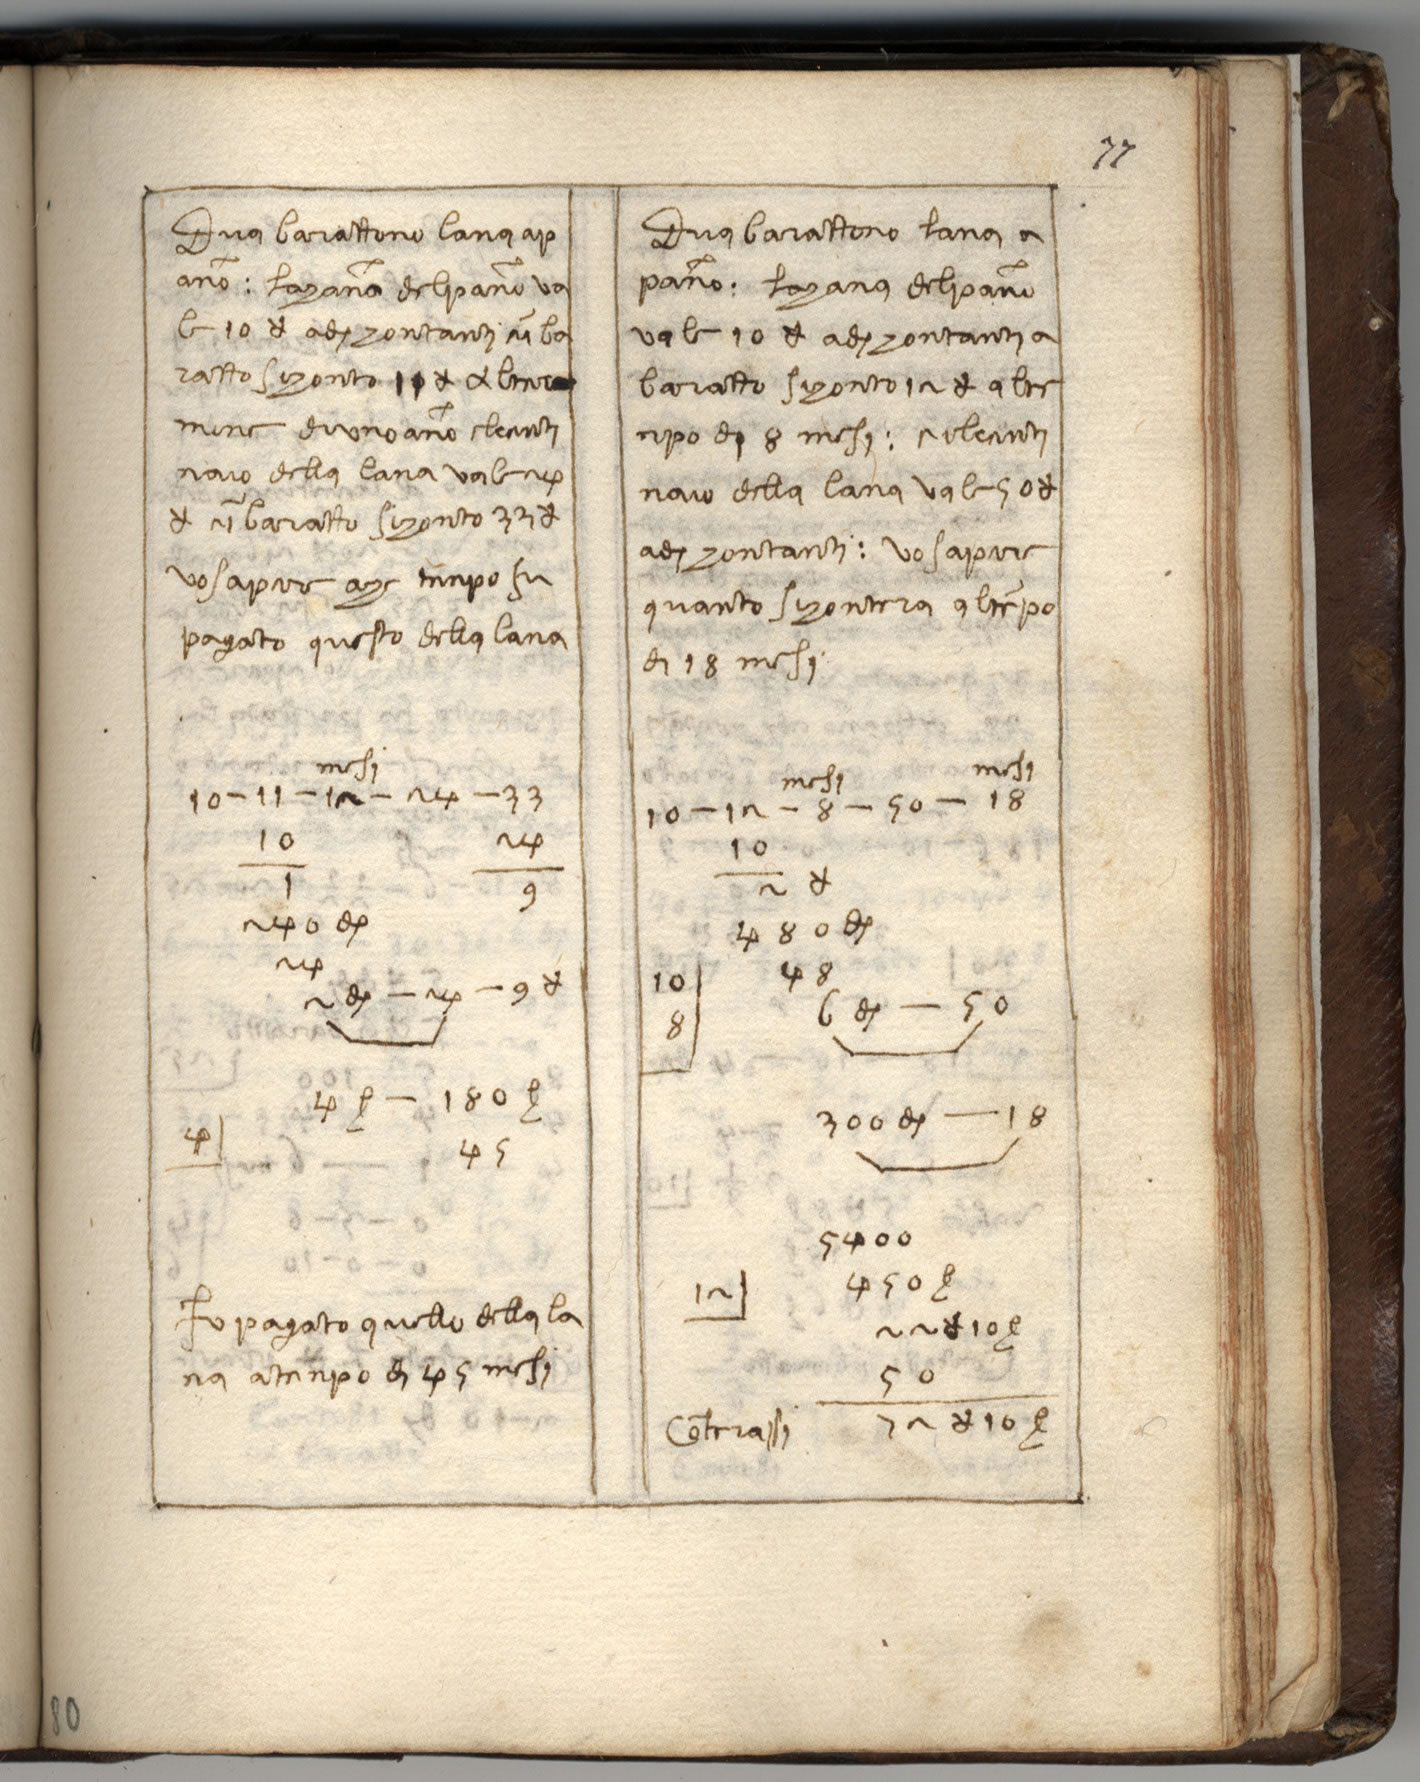 77
Dua barattono lana a p
ano: la cana del pano va
le 10 ∀ a d. contanti in ba
ratto si conto 11 ∀ al ter
mine di uno ano el centi
naio della lana vale 24
∀ in baratto si conto 33 ∀
vo sapere a che tempo fu
pagato questo della lana
mesi
10 – 11 – 12 – 24 – 33
10 24
1 9
240 d.
24
2 d. – 24 – 9 ∀
4 ₰ – 180 ₰
4 45
Fu pagato quello della la
na a tempo di 45 mesi
Dua barattono lana a
pano: la cana del pano
vale 10 ∀ a d. contanti a
baratto si conto 12 ∀ al te
mpo di 8 mesi: el centi
naio della lana vale 50 ∀
a d. contanti: vo sapere
quanto si contera al tepo
di 18 mesi
mesi mesi
10 – 12 – 8 – 50 – 18
10
2 ∀
480 d.
10 48
8 6 d. – 50
300 d. – 18
5400
12 450 ₰
22 ∀ 10 ₰
50
Coterassi 72 ∀ 10 ₰
80